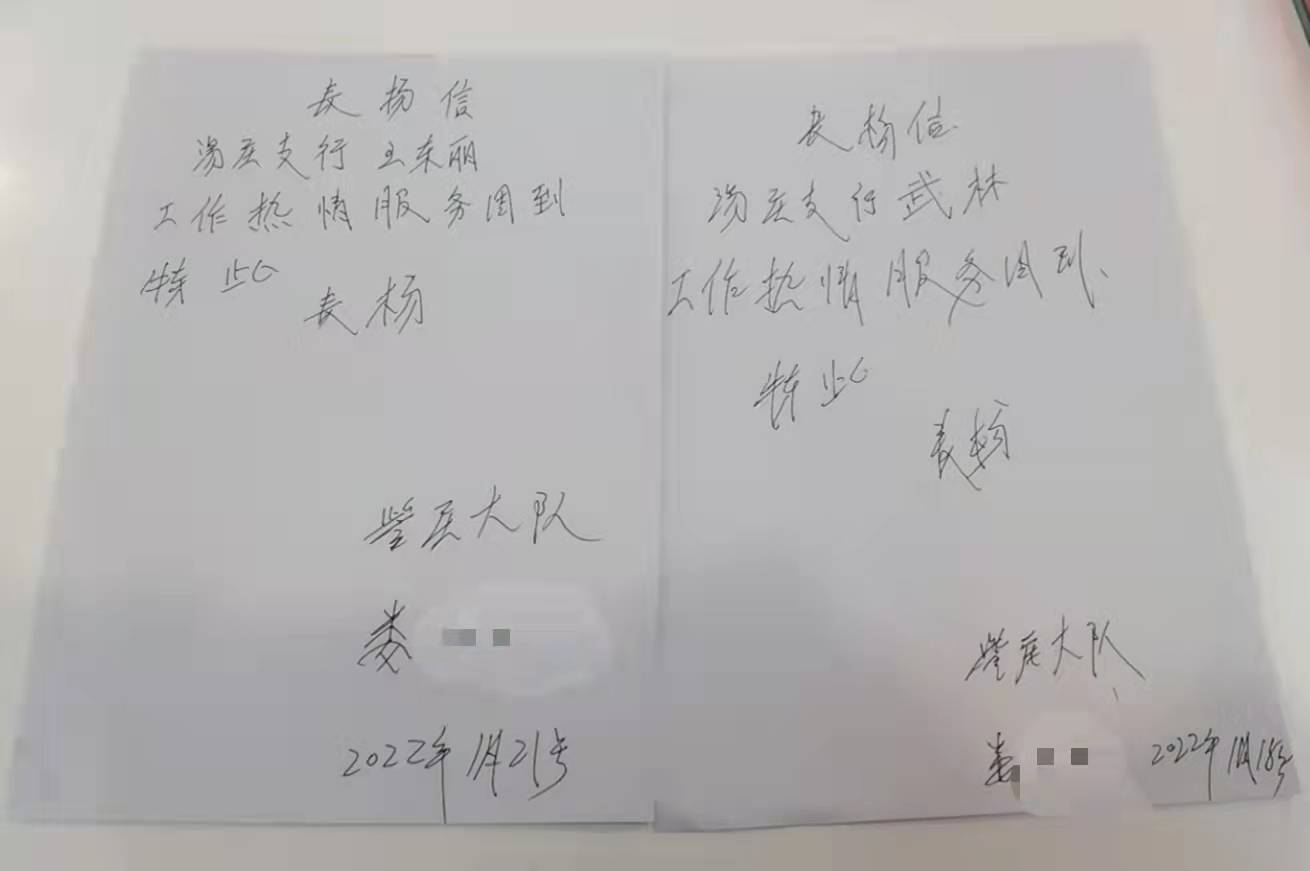 表扬信
汤庄支行 王东丽
工作热情服务周到
特此
表杨
大队
娄
2022年1月21号
表杨信
汤庄支行武林
工作热情服务周到、
特此
表杨
大队
娄
2022年1月18号